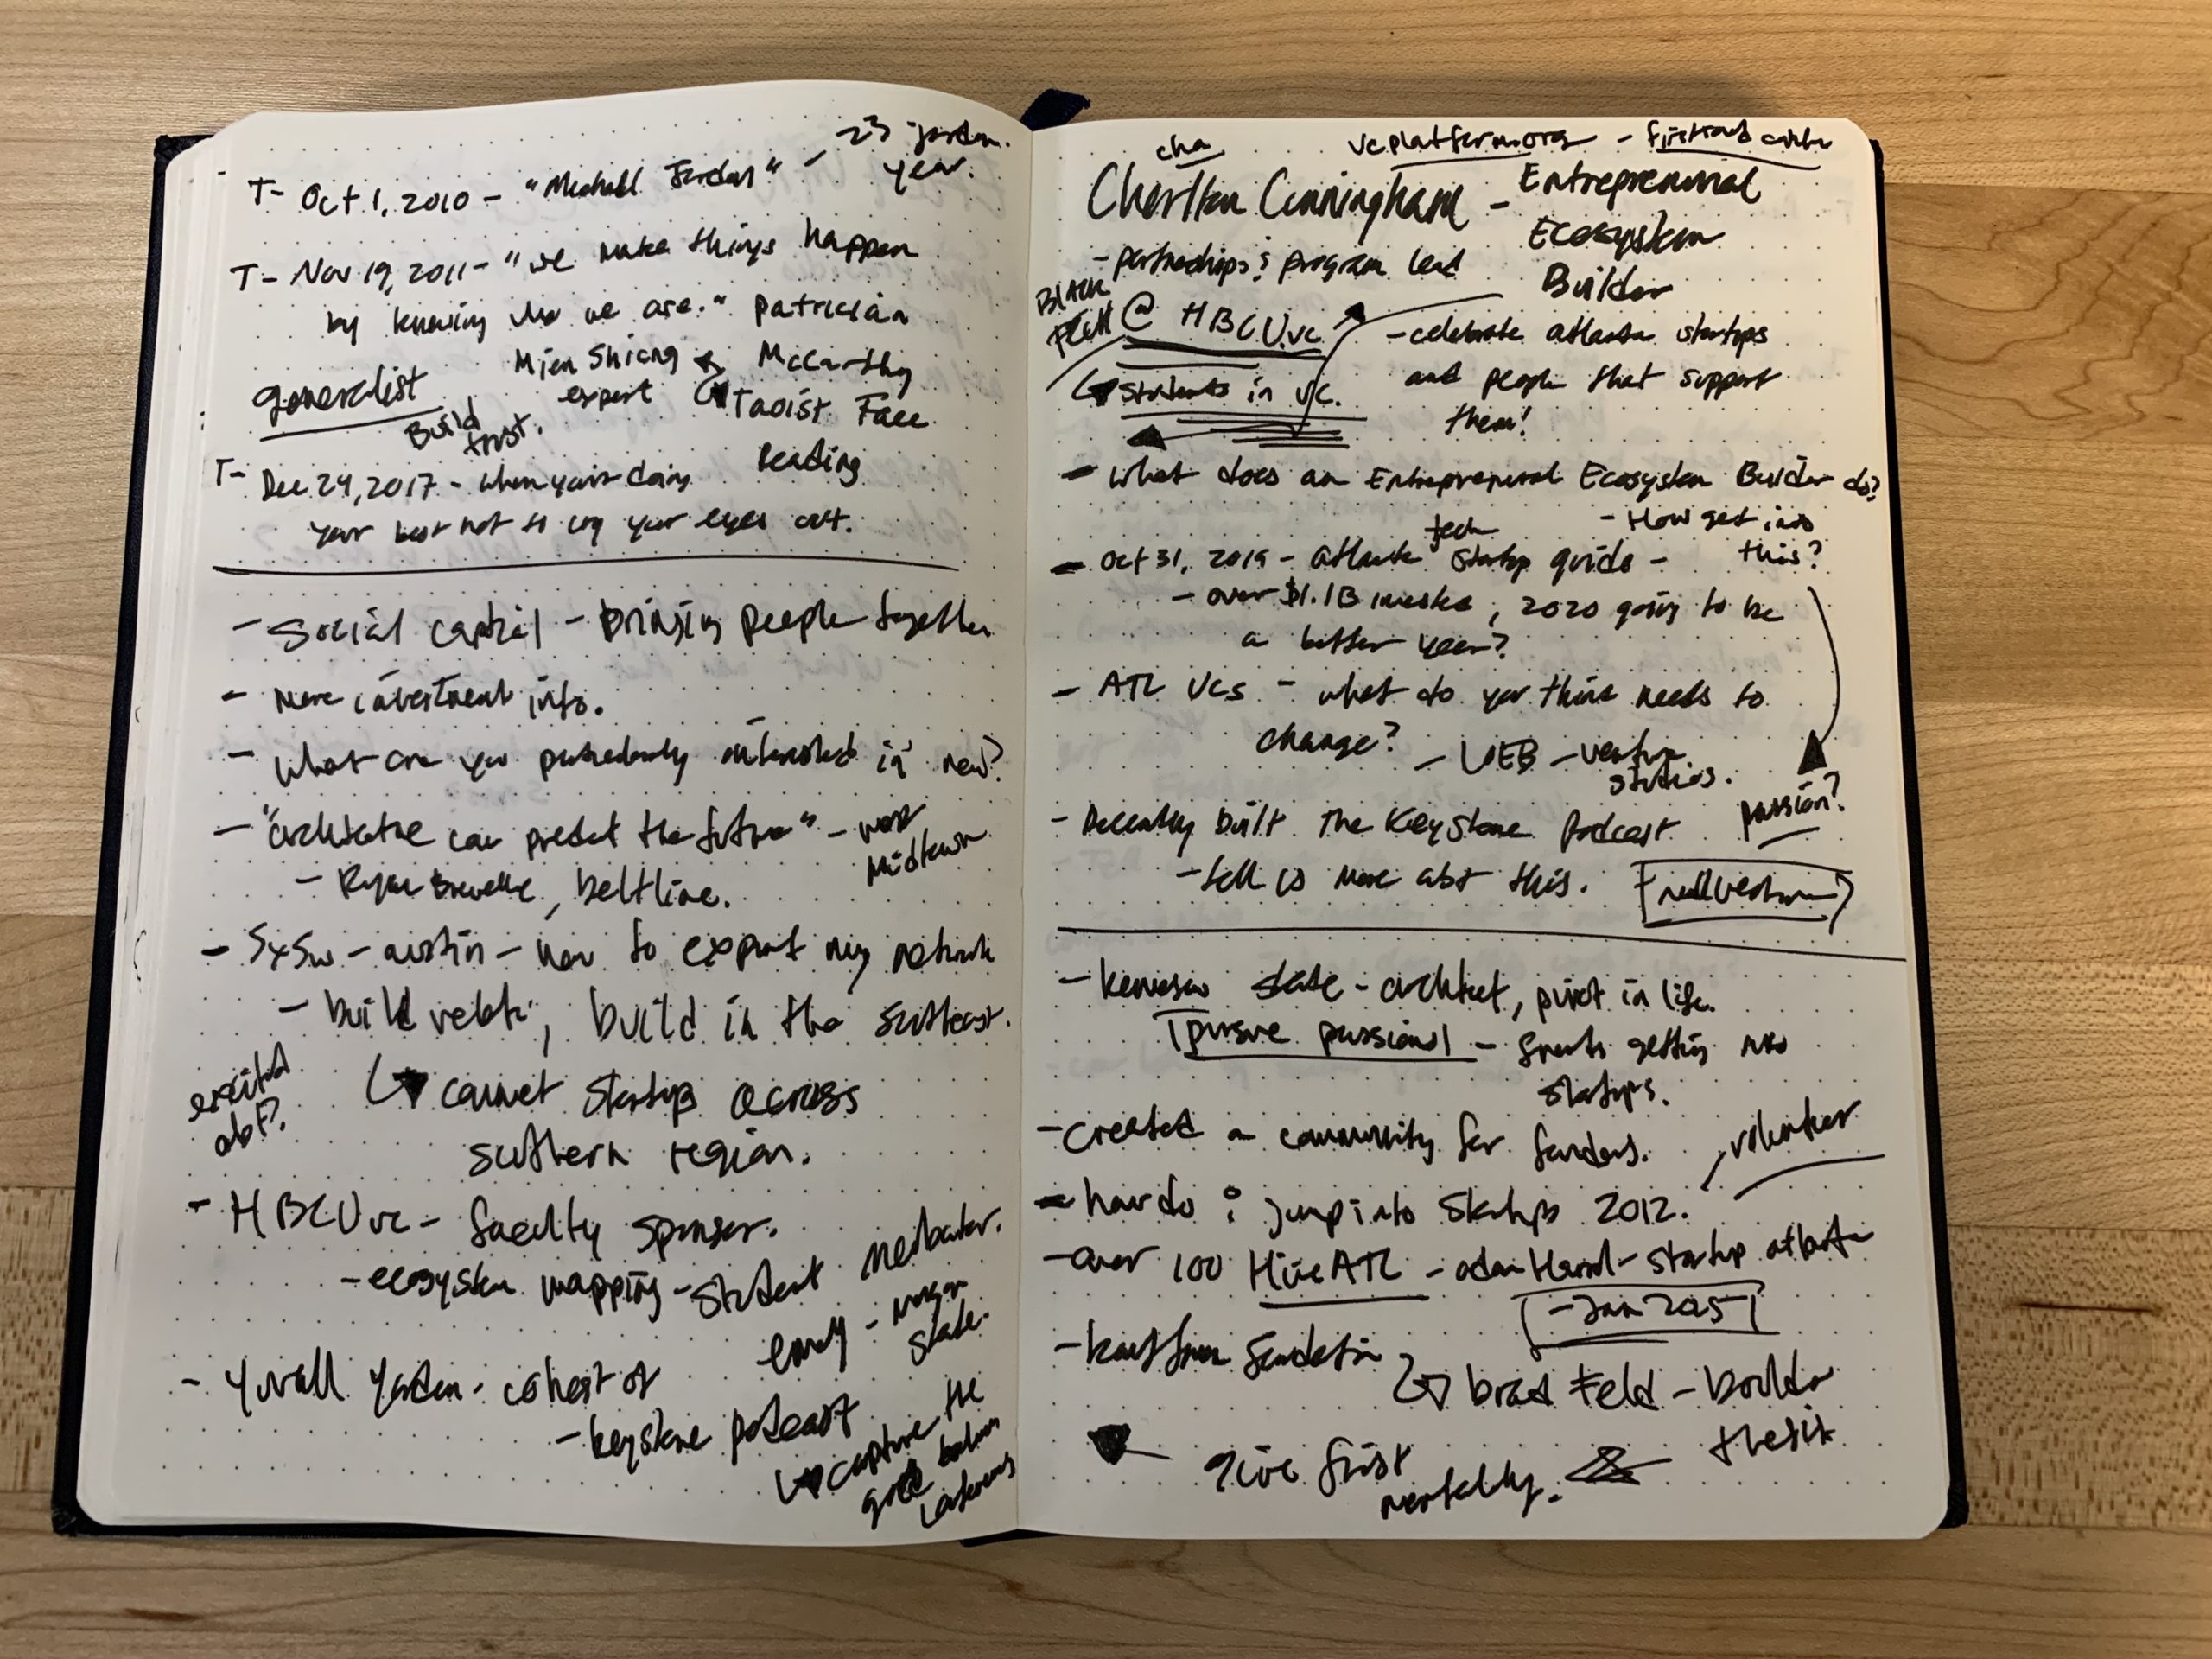 T- Oct 1, 2010 - "Michael Jordan" - 23 jordan
year.
T- Nov 19, 2011 - "we make things happen
by knowing who we are." patrician
Mien Shiang McCarthy
generalist expert Taoist Face
Build trust. Reading
T- Dec 24, 2017 - when you're doing
your best not to cry your eyes out.
- Social capital - bringing people together
- More investment info.
- What are you interested in now?
- "architecture can predict the future" - west
midtown
- Ryan, beltline.
- SxSw - austin - how to my network
- build, build in the southeast.
excited abt?
connect startups across
southern region.
- HBCUvc - faculty sponsor.
- ecosystem mapping - student
state.
- cohort of
- keystone podcast
capture the
cha vcplatform.org - first round
Charlton Cunningham - Entrepreneurial
Ecosystem
Builder
- partnerships & program lead
Black
@ HBCUvc
students in vc.
- celebrate atlanta startups
and people that support
them!
- What does an Entrepreneurial Ecosystem Builder do?
- How get into
this?
- Oct 31, 2019 - atlanta tech startup guide -
- over $1.1B, 2020 going to be
a better year?
- ATL VCs - what do you think needs to
change? - venture
studios.
- Recently built The Keystone Podcast
passion?
- tell us more abt this.
- kennesaw state - architect, pivot in life.
pursue passion - getting into
startups.
- created a community for founders.
volunteer
- how do i jump into startups 2012.
- over 100 Hive ATL - startup atlanta
- kauffman foundation
brad Feld - boulder
thesis
give first
mentality.